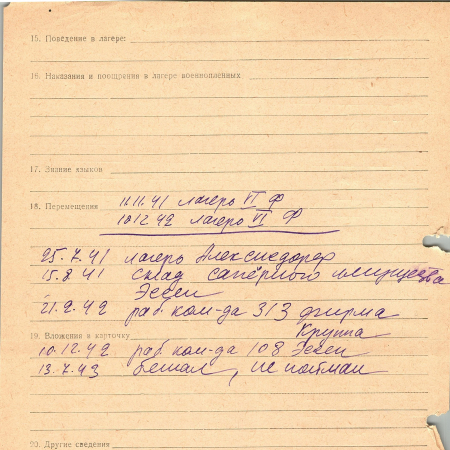 15. Поведение в лагере:
16. Наказания и поощрения в лагере военнопленных
17. Знание языков
18. Перемещения
11.11.41 лагерь VI Ф
10.12.42 лагерь VI Ф
25.7.41 лагерь Александорф
15.8.41 склад сапёрного имущества
Эссен
21.2.42 раб. ком-да 313 фирма
Круппа
19. Вложения в карточку
10.12.42 раб. ком-да 108 Эссен
13.7.43 бежал, не пойман
20. Другие сведения